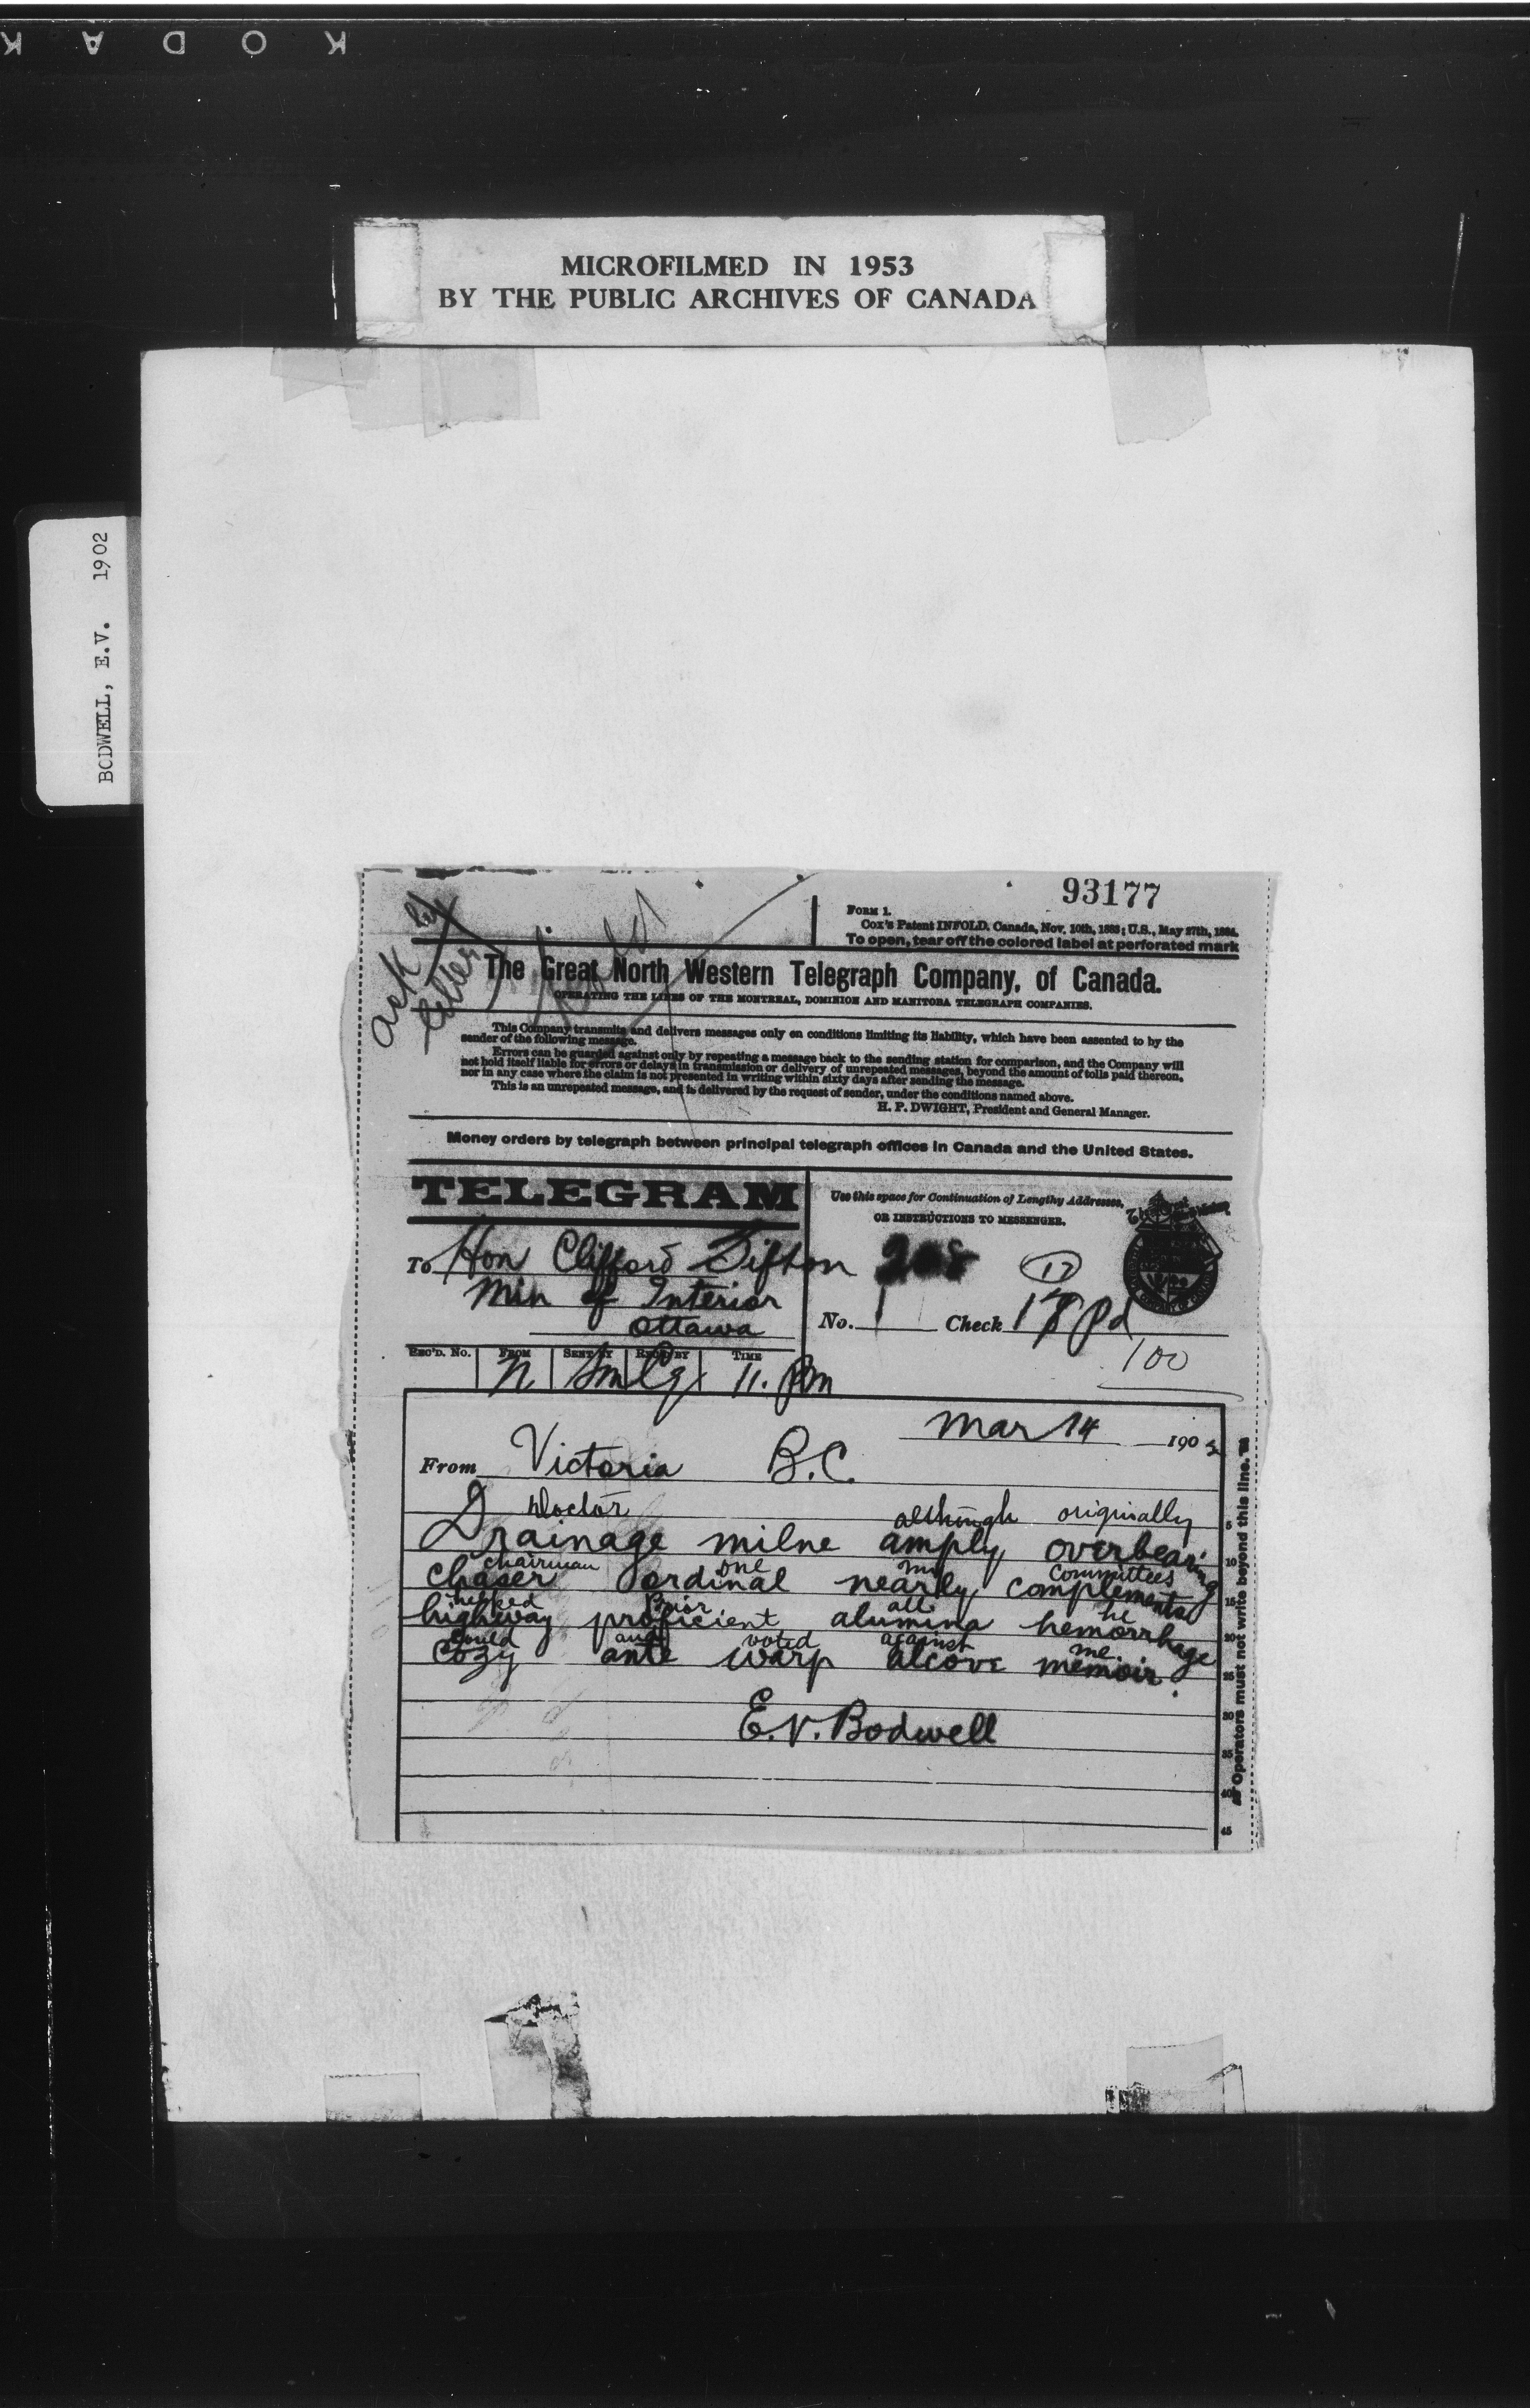 KODAK
MICROFILMED IN 1953
BY THE PUBLIC ARCHIVES OF CANADA
BODWELL, E.V. 1902
93177
Ask by
letter
FORM 1.
Cox's Patent INFOLD. Canada, Nov. 10th, 1883; U.S., May 27th, 1884.
To open, tear off the colored label at perforated mark
The Great North Western Telegraph Company, of Canada.
OPERATING THE LINES OF THE MONTREAL, DOMINION AND MANITOBA TELEGRAPH COMPANIES.
This Company transmits and delivers messages only on conditions limiting its liability, which have been assented to by the
sender of the following message.
Errors can be guarded against only by repeating a message back to the sending station for comparison, and the Company will
not hold itself liable for errors or delays in transmission or delivery of unrepeated messages, beyond the amount of tolls paid thereon,
nor in any case where the claim is not presented in writing within sixty days after sending the message.
This is an unrepeated message, and is delivered by the request of sender, under the conditions named above.
H. P. DWIGHT, President and General Manager.
Money orders by telegraph between principal telegraph offices in Canada and the United States.
TELEGRAM
Use this space for Continuation of Lengthy Addresses,
OR INSTRUCTIONS TO MESSENGER.
To Hon Clifford Sifton
Min of Interior
Ottawa
208
17
No. 1 Check 18 Pd
100
REC'D. No. FROM SENT BY REC'D BY TIME
N Sm Cg 11. Pm
Mar 14 1902
From Victoria B.C.
Doctor although originally
Drainage milne amply overbearing
chairman one my committees
chaser ordinal nearly complemental
helped Prior all he
highway proficient alumina hemorrhage
could and voted against me.
cozy ante warp alcove memoir.
E.V. Bodwell
Operators must not write beyond this line.
5
10
15
20
25
30
35
40
45